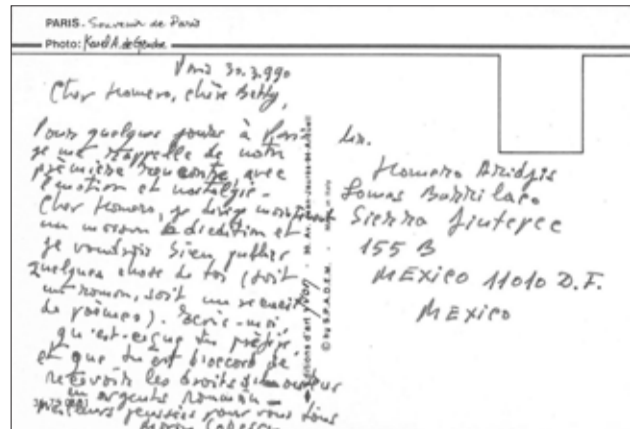 PARIS. Souvenir de Paris
Photo: Karel A. de Gendre
Paris 30.3.990
Cher Homero, chère Betty,
Pour quelques jours à Paris
je me rappelle de notre
première rencontre avec
émotion et nostalgie.
Cher Homero, je dirige maintenant
une maison d'edition et
je voudrais bien publier
quelques chose de toi (soit
un roman, soit un recueil
de poèmes). Ecris-moi,
qu'est-ce que tu préfère
et que tu est d'accord de
recevoir les droits d'auteur
en argents roumain -
Meilleurs pensées pour vous tous
© by S.P.A.D.E.M.
Homero Aridjis
Lomas Barrilaco
Sierra Jiutepec
155 B
MEXICO 11010 D.F.
MEXICO